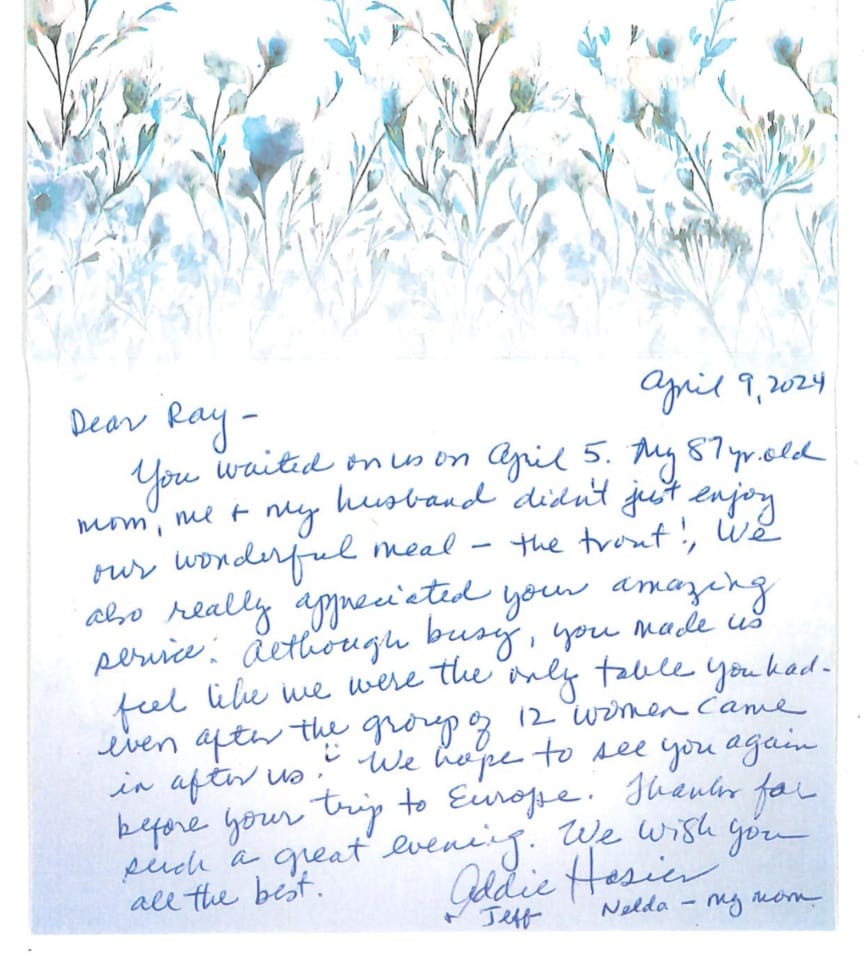 April 9, 2024
Dear Ray -
You waited on us on April 5. My 87 yr. old
mom, me + my husband didn't just enjoy
our wonderful meal - the trout!, We
also really appreciated your amazing
service. Although busy, you made us
feel like we were the only table you had -
even after the group of 12 women came
in after us! We hope to see you again
before your trip to Europe. Thanks for
such a great evening. We wish you
all the best.
Addie Hosier
+ Jeff
Nelda - my mom